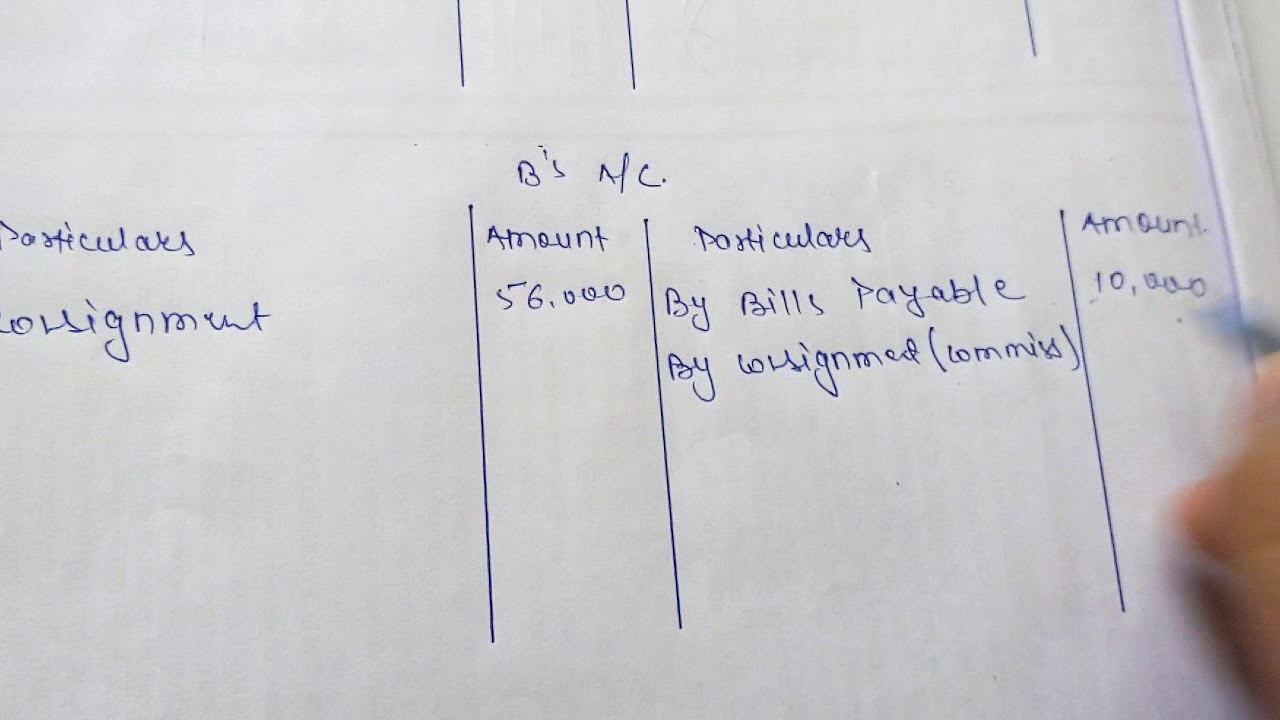 B's A/C.
Particulars Amount Particulars Amount.
Consignment 56,000 By Bills Payable 10,000
By Consignmet (Commiss)